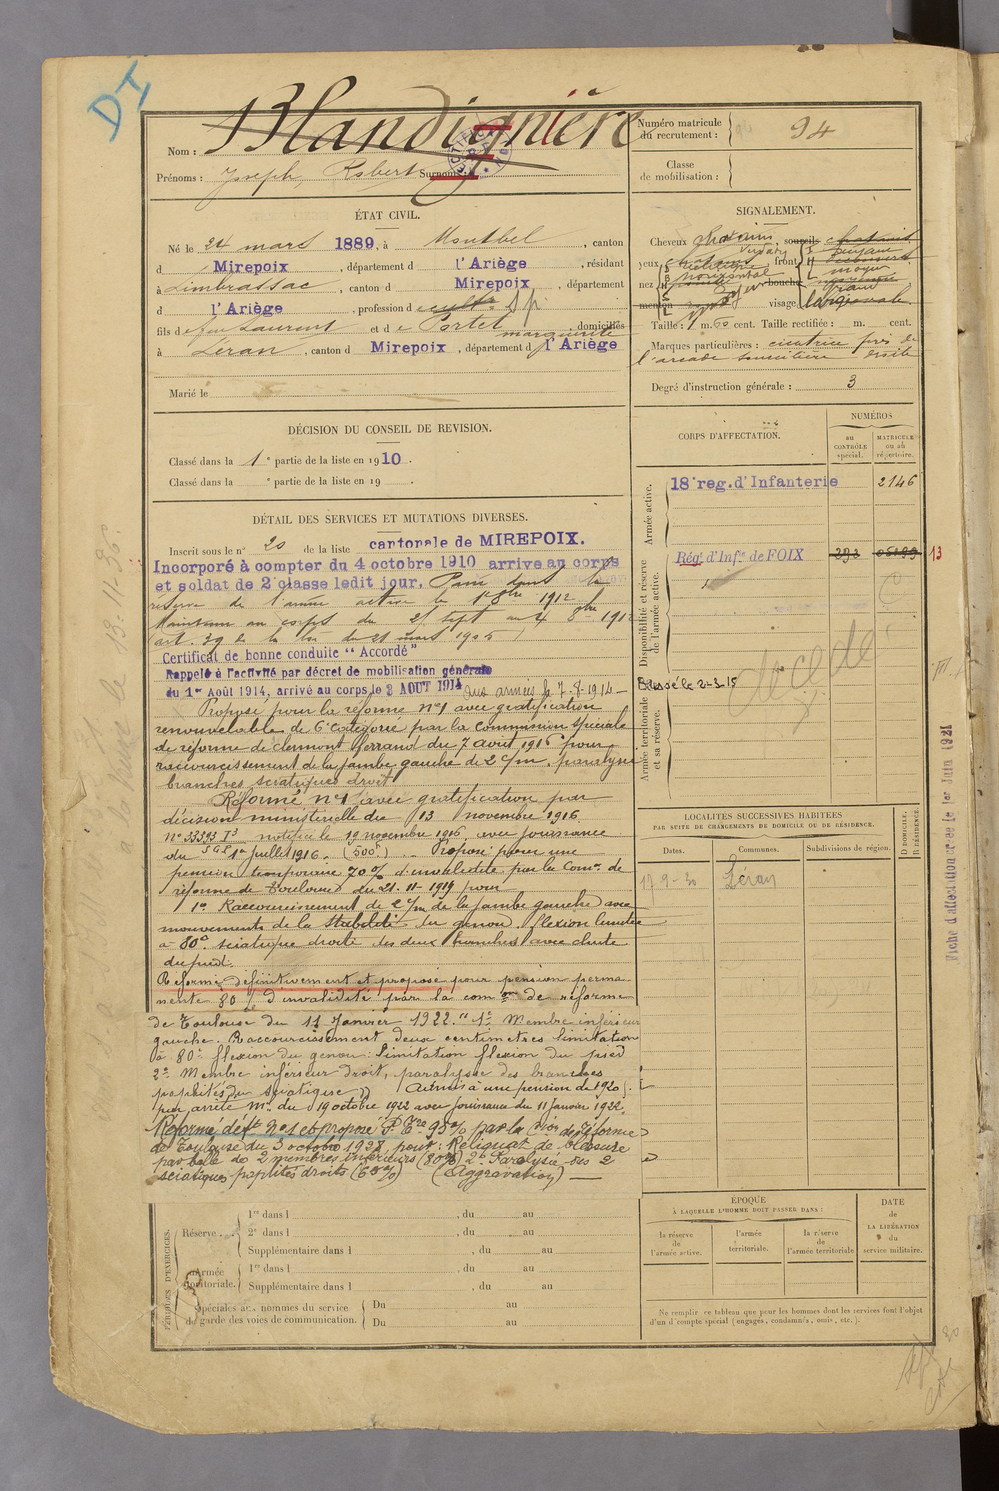 DI
Nom : Blandignière
Prénoms : Joseph Robert Surnoms :
ÉTAT CIVIL.
Né le 24 mars 1889, à Montbel, canton
d Mirepoix, département d l'Ariège, résidant
à Limbrassac, canton d Mirepoix, département
d l'Ariège, profession de cultr
fils de feu Laurent et de Portet marguerite, domiciliés
à Léran, canton d Mirepoix, département d l'Ariège
Marié le
DÉCISION DU CONSEIL DE REVISION.
Classé dans la 1e partie de la liste en 1910.
Classé dans la e partie de la liste en 19 .
DÉTAIL DES SERVICES ET MUTATIONS DIVERSES.
Inscrit sous le n° 20 de la liste cantonale de MIREPOIX.
Incorporé à compter du 4 octobre 1910 arrive au corps
et soldat de 2e classe ledit jour. Passé dans la
réserve de l'armée active le 1er 8bre 1912
Maintenu au corps du 25 sept au 4 8bre 1912
art. 39 de la loi du 21 mars 1905
Certificat de bonne conduite "Accordé"
Rappelé à l'activité par décret de mobilisation générale
du 1er Août 1914, arrivé au corps le 3 AOUT 1914 aux armées le 7-8-1914
Proposé pour la réforme n°1 avec gratification
renouvelable de 6e catégorie par la commission spéciale
de réforme de clermont ferrand du 7 août 1916 pour
raccourcissement de la jambe gauche de 2 c/m, paralysie
branches sciatiques droit
Réformé n°1 avec gratification par
décision ministérielle du 13 novembre 1916
N° 33393 I3 notifiée le 19 novembre 1916 avec jouissance
du 1er Juillet 1916. (500f). Proposé pour une
pension temporaire 70% d'invalidité par la Comon de
réforme de Toulouse du 21-11-1919 pour
1° Raccourcissement de 2 c/m de la jambe gauche avec
mouvements de la stabilité du genou, flexion limitée
à 80°. sciatique droite des deux branches avec chute
du pied.
Réformé définitivement et proposé pour pension perma-
nente 80% d'invalidité par la comon de réforme
de Toulouse du 11 Janvier 1922. "1° Membre inférieur
gauche. Raccourcissement deux centimètres limitation
à 80° flexion du genou: limitation flexion du pied
2° Membre inférieur droit, paralysie des branches
poplités du sciatique)) Admis à une pension de 1920 f.
par arrêté Mel du 19 octobre 1922 avec jouissance du 11 Janvier 1922.
Réformé déft n°1 et proposé P. Pre 95% par la Con de Réforme
de Toulouse du 3 octobre 1928 pour: Reliquat de blessure
par balle de 2 membres inférieurs (80%) 2° Paralysie des 2
sciatiques poplités droits (65%) (Aggravation)
PÉRIODES D'EXERCICES.
Réserve.
1re dans l , du au
2e dans l , du au
Supplémentaire dans l , du au
Armée territoriale.
1re dans l , du au
Supplémentaire dans l , du au
Spéciales aux hommes du service de garde des voies de communication.
Du au
Du au
Numéro matricule du recrutement : 94
Classe de mobilisation :
SIGNALEMENT.
Cheveux chatains, sourcils chatains
yeux chatains, front découvert
nez , bouche moyenne
menton rond, visage
Taille : 1 m. 60 cent. Taille rectifiée : m. cent.
Marques particulières : cicatrice près de
l'arcade sourcilière droite
Degré d'instruction générale : 3
CORPS D'AFFECTATION.
NUMÉROS
au CONTRÔLE spécial.
MATRICULE ou au répertoire.
Armée active.
18e reg. d'Infanterie 2146
Disponibilité et réserve de l'armée active.
Régt d'Infie de FOIX 393 13
décédé
Blessé le 2-3-15
Armée territoriale et sa réserve.
LOCALITÉS SUCCESSIVES HABITÉES
PAR SUITE DE CHANGEMENTS DE DOMICILE OU DE RÉSIDENCE.
Dates. Communes. Subdivisions de région. D DOMICILE. R RÉSIDENCE.
17-9-30 Léran
ÉPOQUE
À LAQUELLE L'HOMME DOIT PASSER DANS :
la réserve de l'armée active.
l'armée territoriale.
la réserve de l'armée territoriale
DATE de LA LIBÉRATION du service militaire.
Ne remplir ce tableau que pour les hommes dont les services font l'objet
d'un décompte spécial (engagés, condamnés, omis, etc.).
Fiche d'affectation créée le 1er Juin 1921